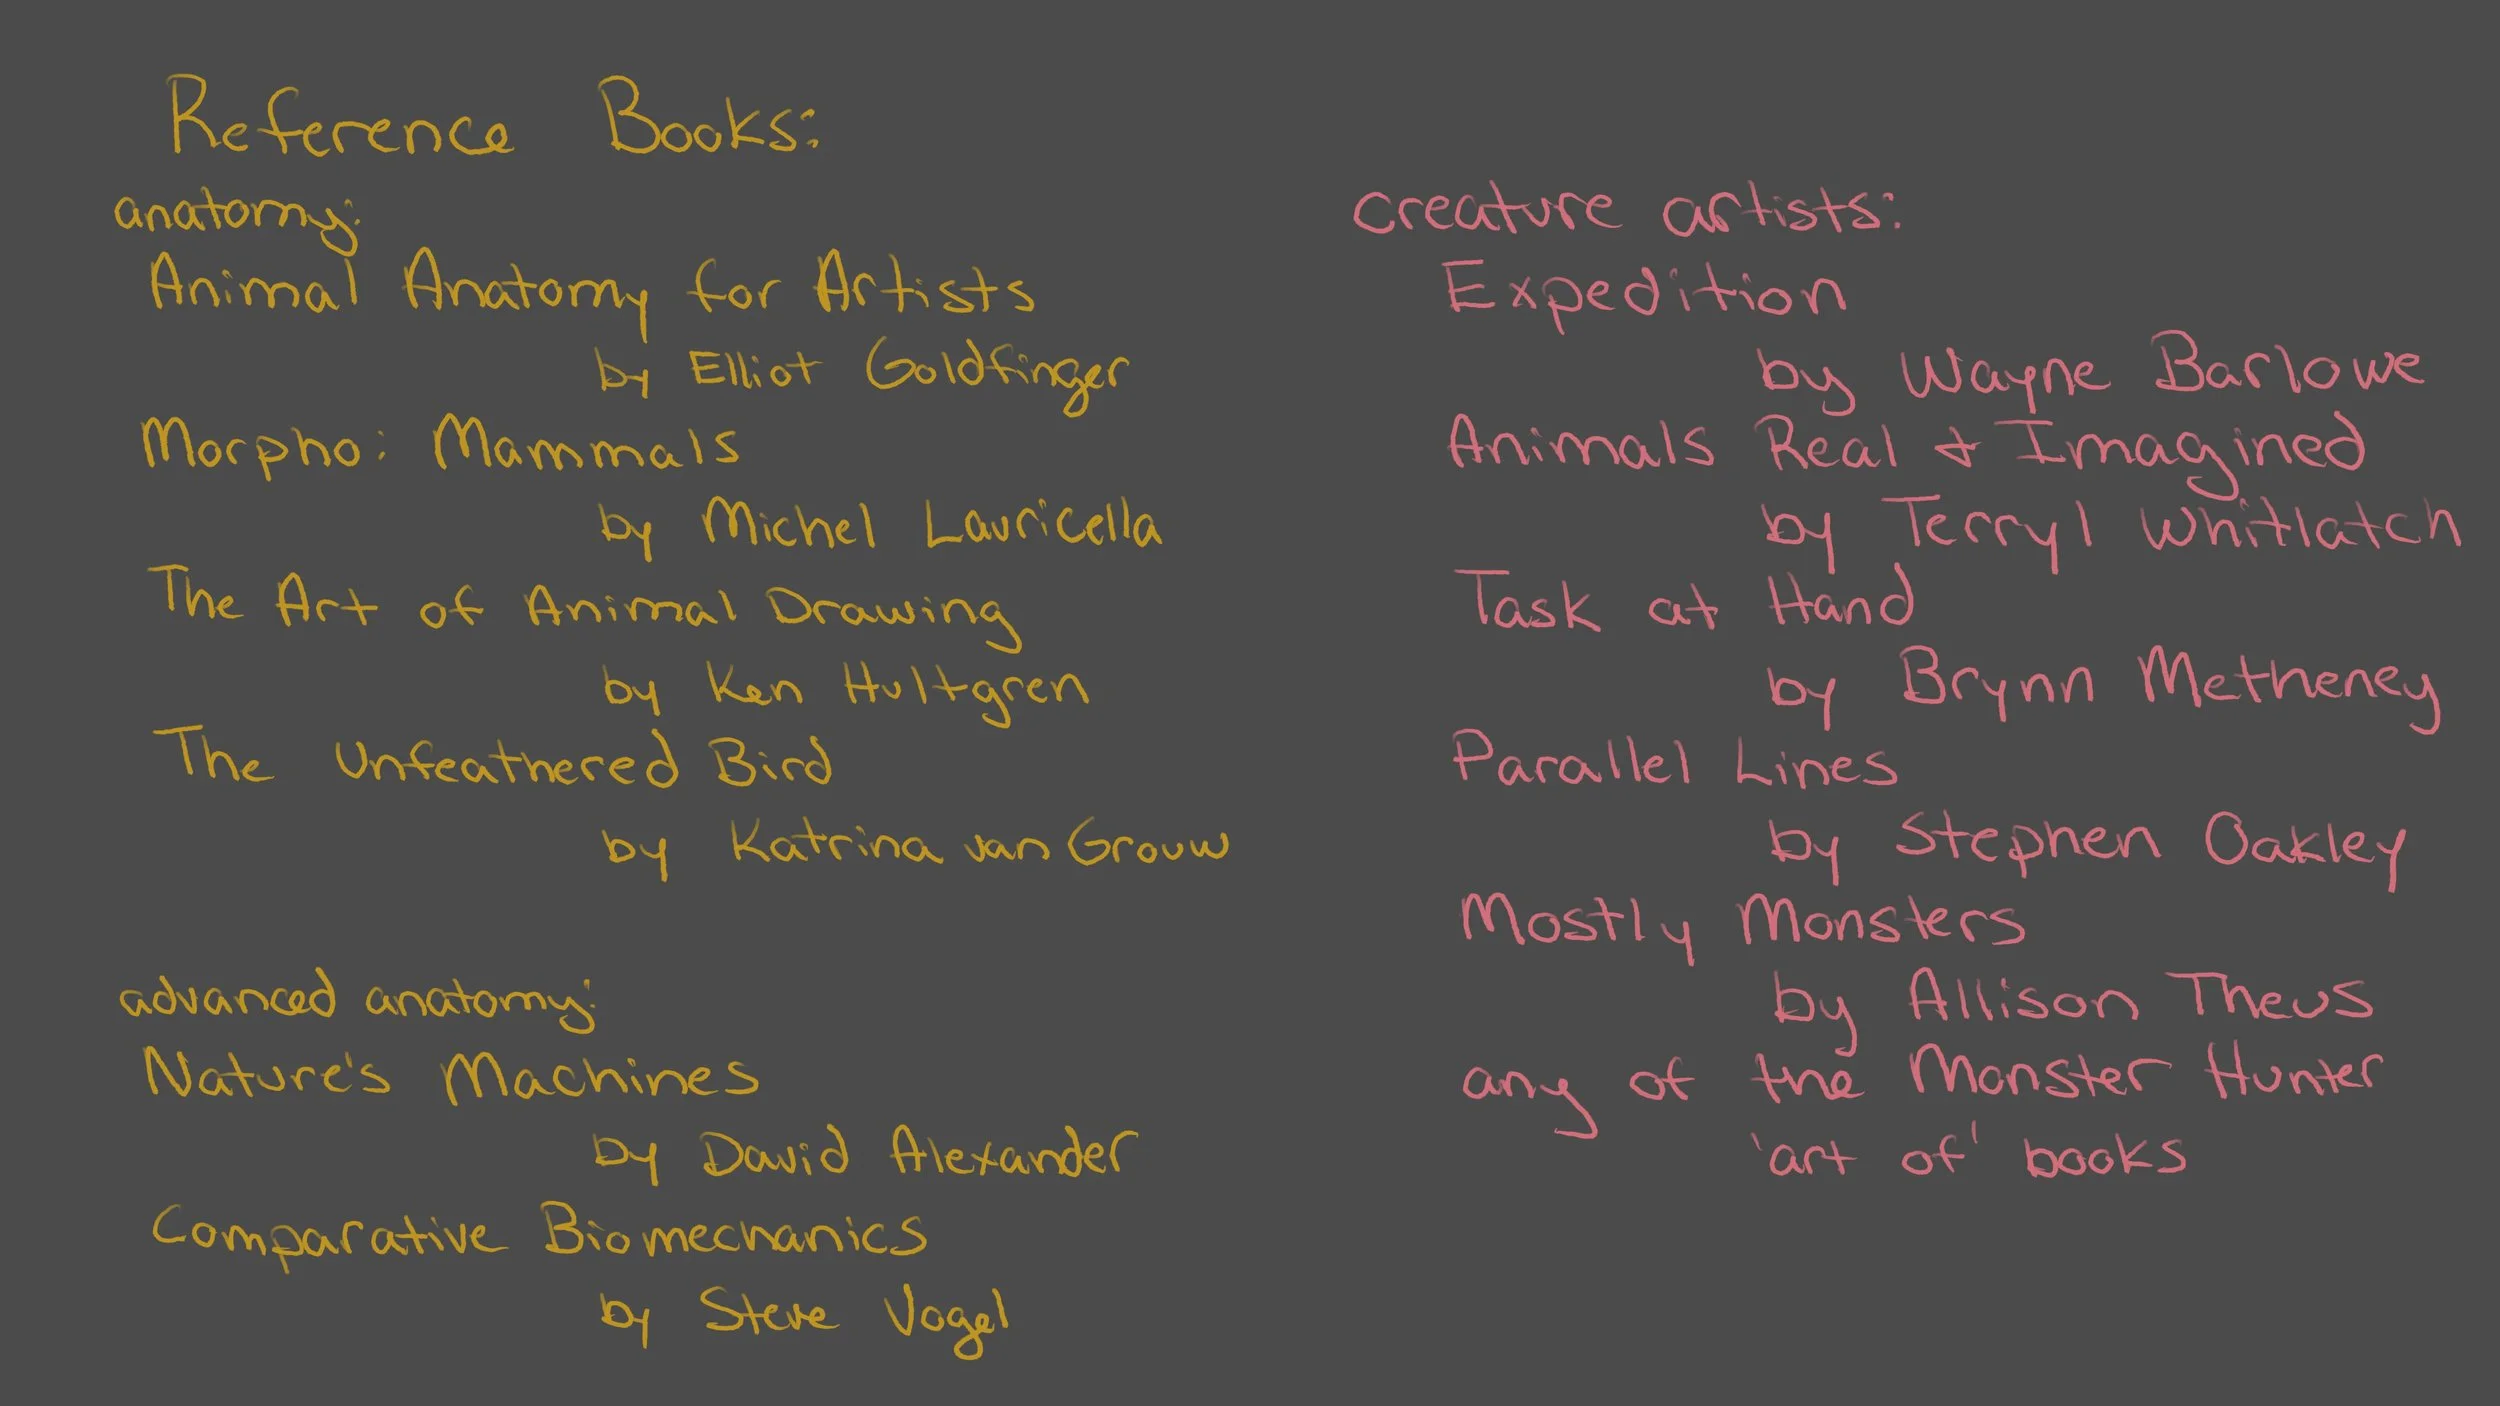 Reference Books:
anatomy:
Animal Anatomy for Artists
by Elliot Goldfinger
Morpho: Mammals
by Michel Lauricella
The Art of Animal Drawing
by Ken Hultgren
The Unfeathered Bird
by Katrina van Grouw
advanced anatomy:
Nature's Machines
by David Alexander
Comparative Biomechanics
by Steve Vogel
creature artists:
Expedition
by Wayne Barlowe
Animals Real & Imagined
by Terryl Whitlatch
Task at Hand
by Brynn Metheney
Parallel Lines
by Stephen Oakley
Mostly Monsters
by Allison Theus
any of the Monster Hunter
'art of' books